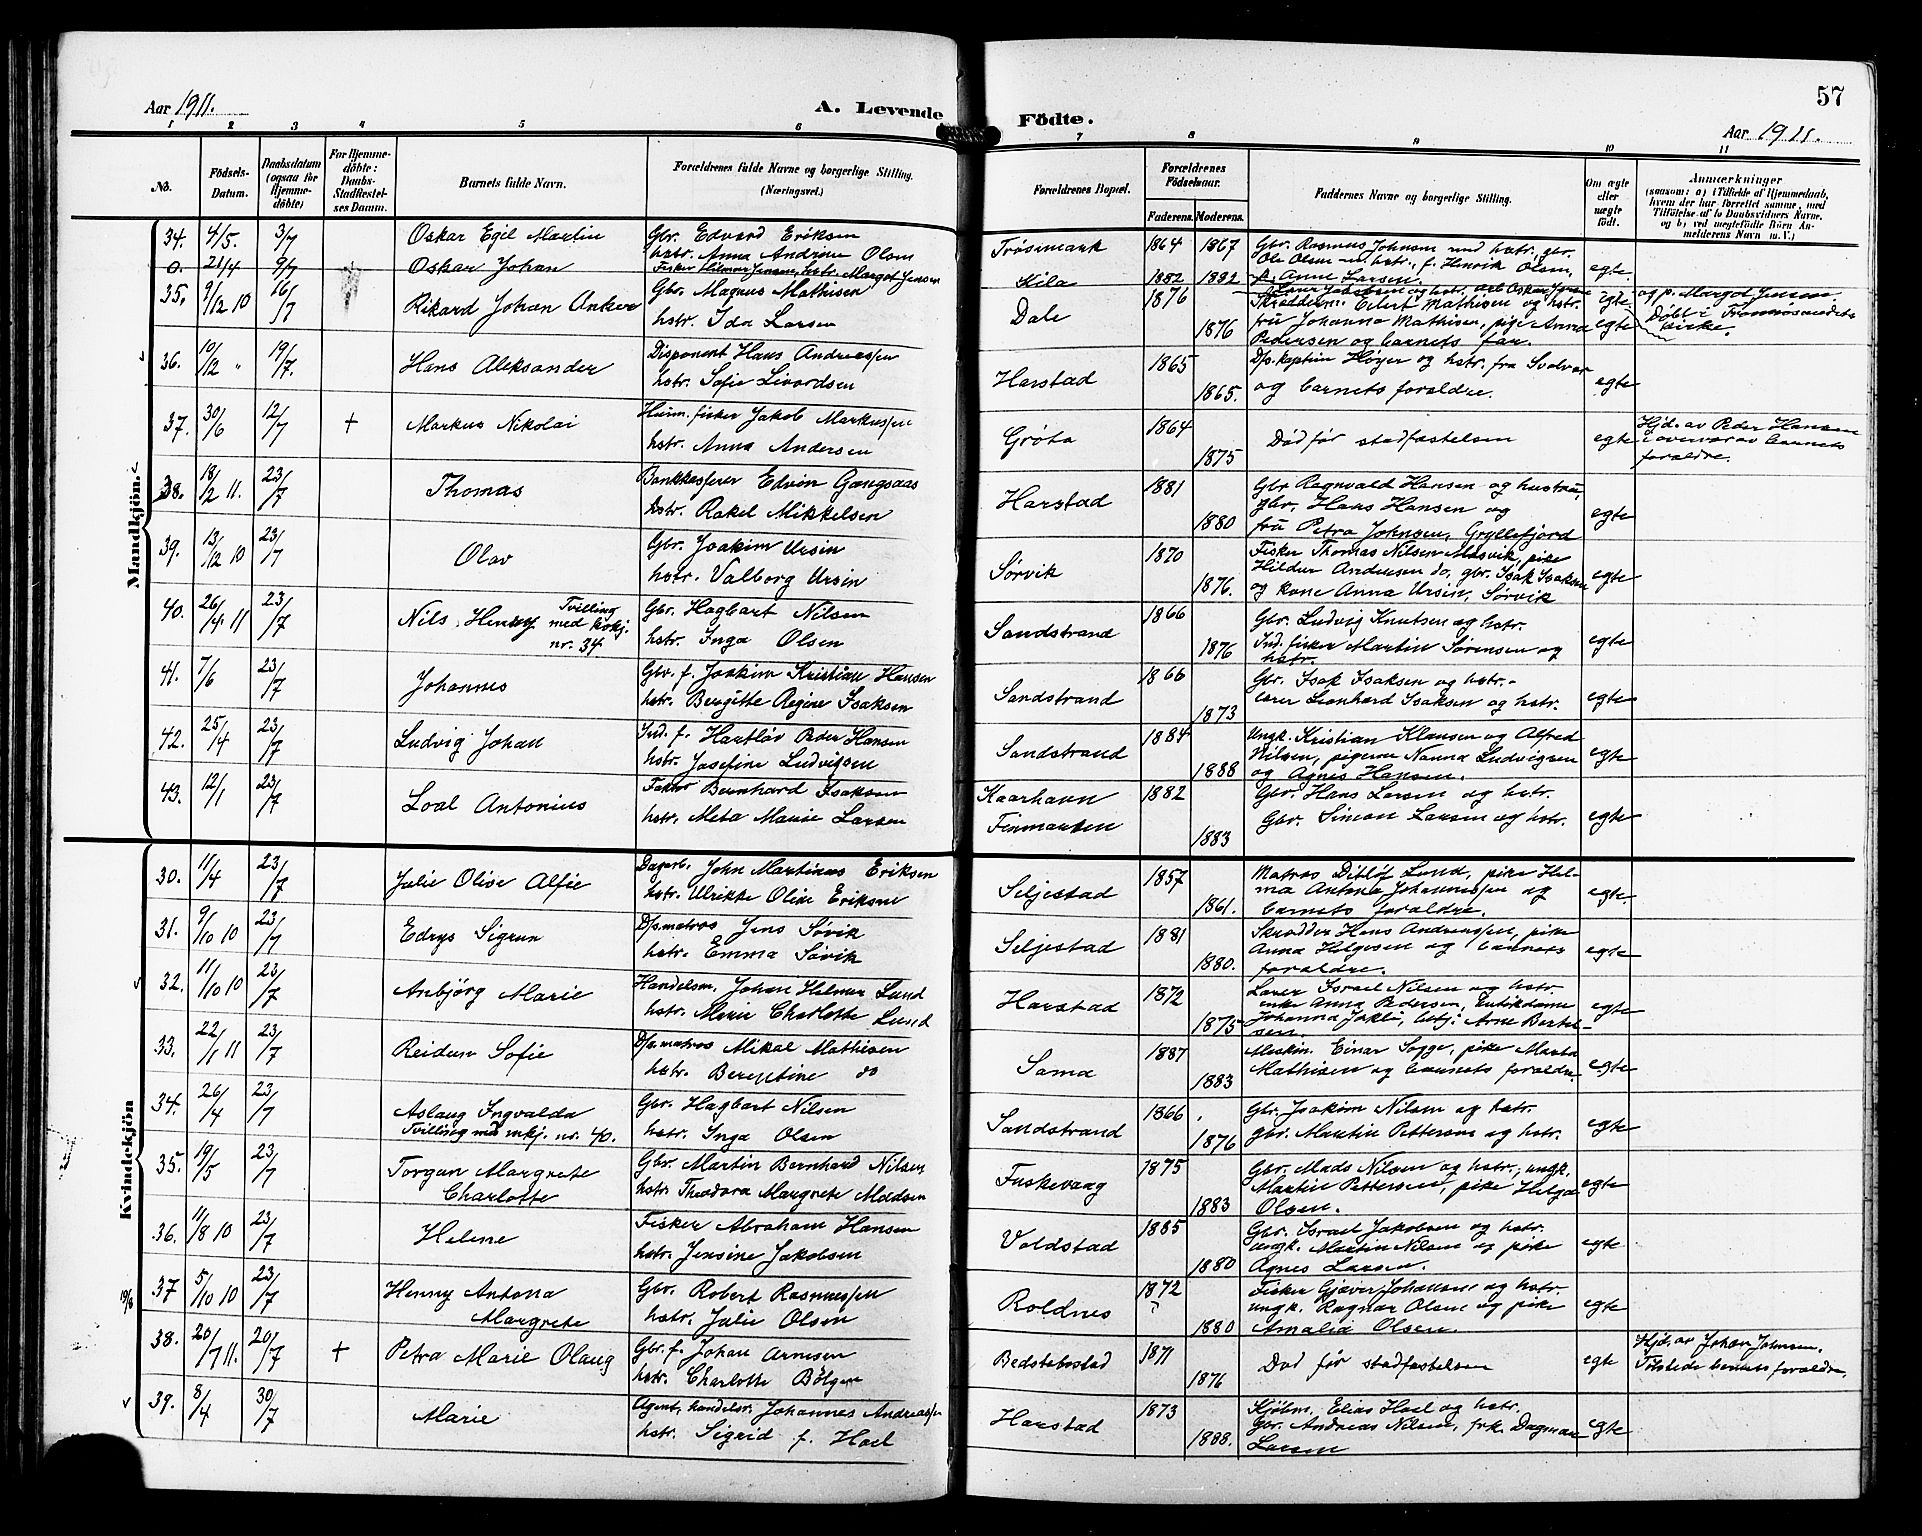 57
Aar 1911.
A. Levende
Födte.
Aar 1911.
1 2 3 4 5 6
7 8 9 10 11
No.
Födsels-
Datum.
Daabsdatum
(ogsaa for
Hjemme-
döbte)
For Hjemme-
döbte:
Daabs-
Stadfæstel-
ses Datum.
Barnets fulde Navn.
Forældrenes fulde Navne og borgerlige Stilling.
(Næringsvei.)
Forældrenes Bopæl.
Forældrenes
Födselsaar.
Faderens. Moderens.
Faddernes Navne og borgerlige Stilling.
Om ægte
eller
uægte
födt.
Anmærkninger
(saasom: a) i Tilfælde af Hjemmedaab,
hvem der har forrettet samme, med
Tilföielse af to Daabsvidners Navne,
og b) ved uegtefödte Börn An-
melderens Navn m. V.)
Mandkjön.
34. 4/5. 3/7 Oskar Egil Martin Gbr. Edvard Eriksen
hstr. Anna Andrea Olsen
Trøsemark 1864 1867 Gbr. Rasmus Johnsen med hstr., gbr.
Ole Olsen med hstr., f. Henrik Olsen,
p. Anne Larsen. egte
0. 21/4 9/7 Oskar Johan Fisker Hilmar Jensen, hstr. Margot Jensen
Kila 1882 1882
egte og p. Margot Jensen.
35. 9/12 10 16/7 Rikard Johan Anker Gbr. Magnus Mathisen
hstr. Ida Larsen
Dale 1876 1876 Skrædderm. Eilert Mathisen og hstr.
fru Johanna Mathisen, pige Anna
Pedersen og barnets far. egte
Døbt i Trondenes
kirke.
36. 10/12 " 19/7. Hans Aleksander Disponent Hans Andreassen
hstr. Sofie Sivordsen
Harstad 1865 1865. D/s.kaptein Høyer og hstr. fra Svolvær
og barnets forældre. egte
37. 30/6 12/7 + Markus Nikolai Husm. fisker Jakob Markussen
hstr. Anna Andersen
Grøta 1864 1875 Død før stadfæstelsen egte
Hjd. av Peder Hansen
i overvær av barnets
forældre.
38. 18/2 11. 23/7 Thomas Bankkasserer Edvin Gangsaas
hstr. Rakel Mikkelsen
Harstad 1881 1880 Gbr Ragnvald Hansen og hustru,
gbr. Hans Hansen og
fru Petra Johnsen, Gryllefjord egte
39. 13/12 10 23/7 Olav Gbr. Joakim Ursin
hstr. Valborg Ursin
Sørvik 1870 1876. Fisker Thomas Nilsen Møsvik, pike
Hildur Andersen do, gbr. Isak Isaksen
og kone Anna Ursin, Sørvik egte
40. 26/4 11 23/7 Nils Henry Tvilling
med kvkj.
nr. 34. Gbr. Hagbart Nilsen
hstr. Inga Olsen
Sandstrand 1866 1876 Gbr. Ludvig Knutsen og hstr.
Ind. fisker Martin Sørensen og
hstr. egte
41. 7/6 23/7 Johannes Gbr. f. Joakim Kristian Hansen
hstr. Bergitte Regine Isaksen
Sandstrand 1866 1873 Gbr. Isak Isaksen og hstr.-
lærer Leonhard Isaksen og hstr. egte
42. 25/4 23/7 Ludvig Johan Ind. f. Hartløv Peder Hansen
hstr. Josefine Ludvigsen
Sandstrand 1884 1888 Ungk. Kristian Klausen og Alfred
Nilsen, pigerne Nanna Ludvigsen
og Agnes Hansen. egte
43. 12/1 23/7 Loal Antonius Fisker Bernhard Isaksen
hstr. Meta Marie Larsen
Kaarhavn
Finmarken 1882 1883 Gbr. Hans Larsen og hstr.
Gbr. Simon Larsen og hstr. egte
Kvindekjön
30. 11/4 23/7 Julie Olise Alfie Dagarb. John Martinus Eriksen
hstr. Ulrikke Oline Eriksen
Seljestad 1857 1861. Matros Ditløf Lund, pike Hel-
ma Antona Johannessen og
barnets forældre. egte
31. 9/10 10 23/7 Edrys Sigrun D/s.matros Jens Søvik
hstr. Emma Søvik
Seljestad 1881 1880. Skrædder Hans Andreassen, pike
Anna Helgesen og barnets
forældre. egte
32. 11/10 10 23/7 Anbjørg Marie Handelsm. Johan Helmer Lund
hstr. Marie Charlotte Lund
Harstad 1872 1875 Lærer Israel Nilsen og hstr.
enke Anna Pedersen, butikdame
Johanna Jakli, betj. Arne Bertel-
sen. egte
33. 22/1 11 23/7 Reidun Sofie D/s.matros Mikal Mathisen
hstr. Bereptine do
Sama 1887 1883 Maskin. Einar Sagge, pike Marta
Mathisen og barnets forældre. egte
34. 26/4 23/7 Aslaug Ingvalda
Tvilling med mkj. nr. 40. Gbr. Hagbart Nilsen
hstr. Inga Olsen
Sandstrand 1866 1876 Gbr. Joakim Nilsen og hstr.
gbr. Martin Pettersen og hstr. egte
35. 19/5 23/7 Torgun Margrete
Charlotte Gbr. Martin Bernhard Nilsen
hstr. Theodora Margrete Madsen
Fuskevaag 1875 1883 Gbr. Mads Nilsen og hstr., ungk.
Martin Pettersen, pike Helga
Olsen. egte
36. 11/8 10 23/7 Helene Fisker Abraham Hansen
hstr. Jensine Jakobsen
Voldstad 1885 1880 Gbr. Israel Jakobsen og hstr.
ungk. Martin Nilsen og pike
Agnes Larsen. egte
19/8 37 5/10 10 23/7 Henny Antona
Margrete Gbr. Robert Rasmussen
hstr. Julie Olsen
Roldnes 1872 ? 1880 Fisker Gjæver Johansen og hstr.
ungk. Ragnar Olsen og pike
Amalia Olsen. egte
38. 20/7 11. 20/7 + Petra Marie Olaug Gbr. f. Johan Arnesen
hstr. Charlotte Bölgen
Bedstebostad 1871 1876 Død før stadfæstelsen egte
Hjd. av Johan Johnsen.
Tilstede barnets forældre.
39. 8/4 30/7 Marie Agent, handelsr. Johannes Andreassen
hstr. Sigrid f. Hoel
Harstad 1873 1888. Kjøbm. Elias Hoel og hstr.
Gbr. Andreas Nilsen, frk. Dagmar
Larsen egte